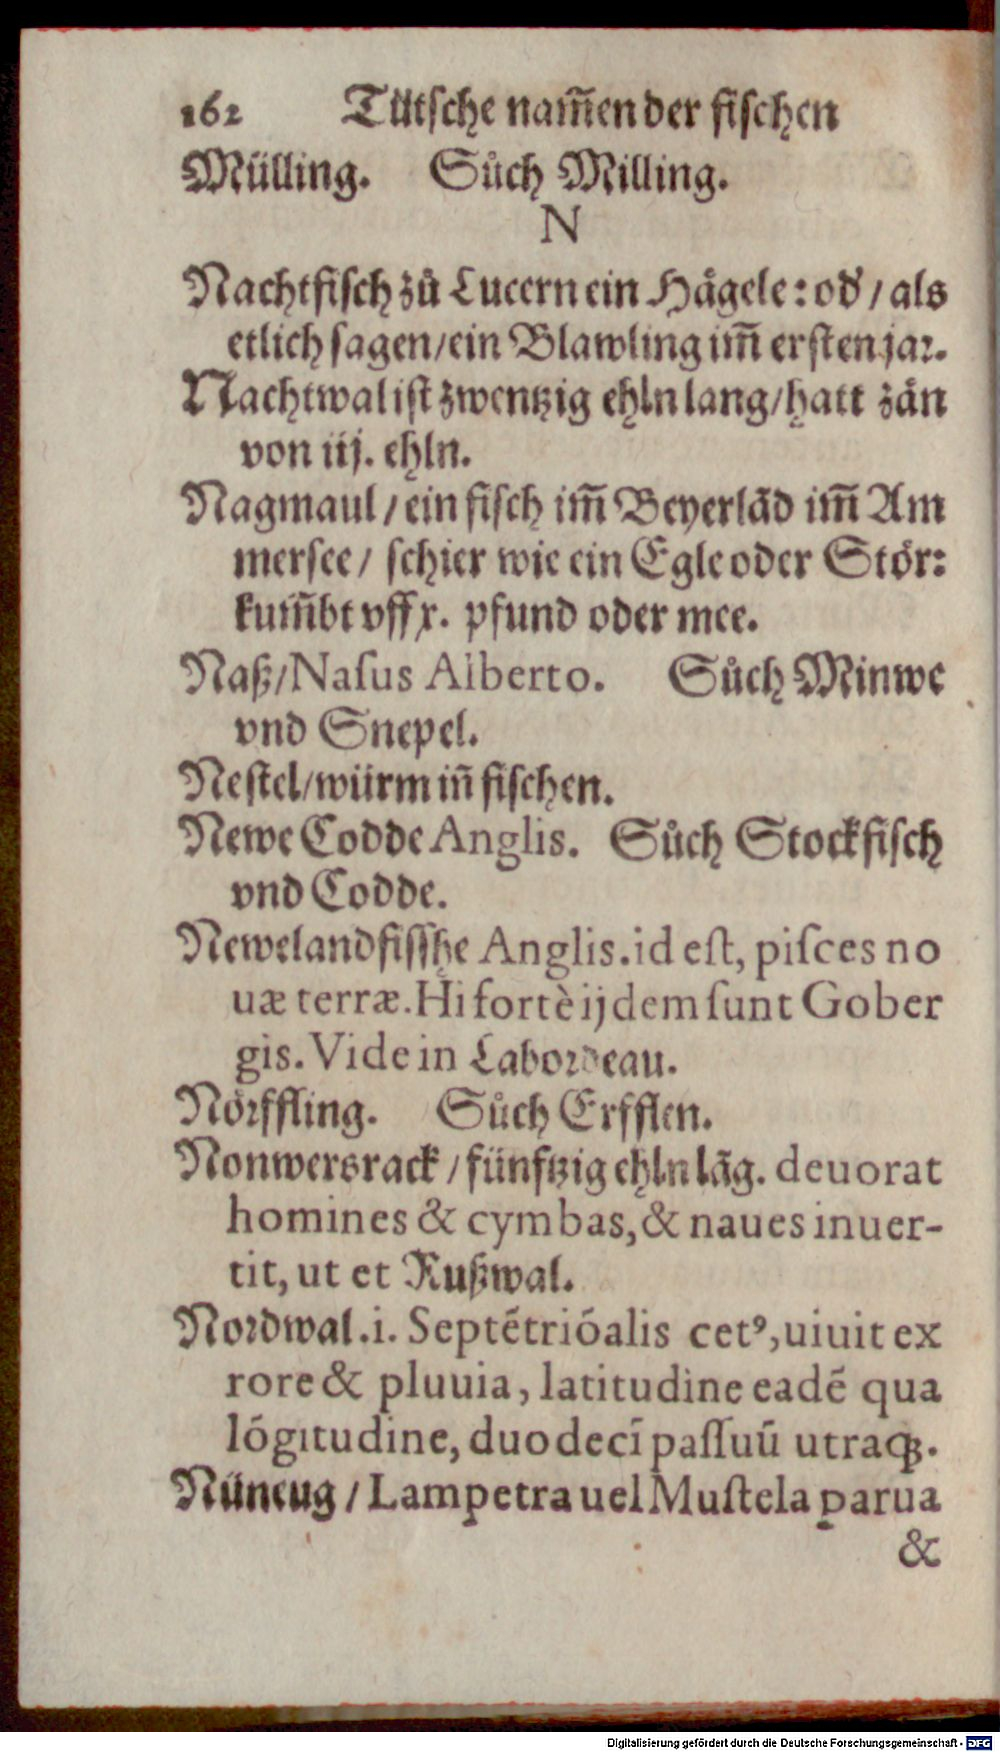 162 Tütsche nam̃en der fischen
Mülling. Sůch Milling.
N
Nachtfisch zů Lucern ein Hågele: od' / als
etlich sagen/ein Blawling im̃ ersten jar.
Nachtwal ist zwentzig ehln lang/hatt zån
von iij. ehln.
Nagmaul / ein fisch im̃ Beyerlãd im̃ Am
mersee/ schier wie ein Egle oder Stör:
kum̃bt vff x. pfund oder mee.
Naß/Nasus Alberto. Sůch Minwe
vnd Snepel.
Nestel/würm iñ fischen.
Newe Codde Anglis. Sůch Stockfisch
vnd Codde.
Newelandfisshe Anglis. id est, pisces no
uæ terræ. Hi fortè ijdem sunt Gober
gis. Vide in Labordeau.
Nörffling. Sůch Erfflen.
Nonwersrack / fünftzig ehln lãg. deuorat
homines & cymbas, & naues inuer-
tit, ut et Rußwal.
Nordwal .i. Septẽtriõalis cetꝰ, uiuit ex
rore & pluuia, latitudine eadẽ qua
lõgitudine, duodecĩ passuũ utraqꝫ.
Nüneug / Lampetra uel Mustela parua
&
Digitalisierung gefördert durch die Deutsche Forschungsgemeinschaft - DFG